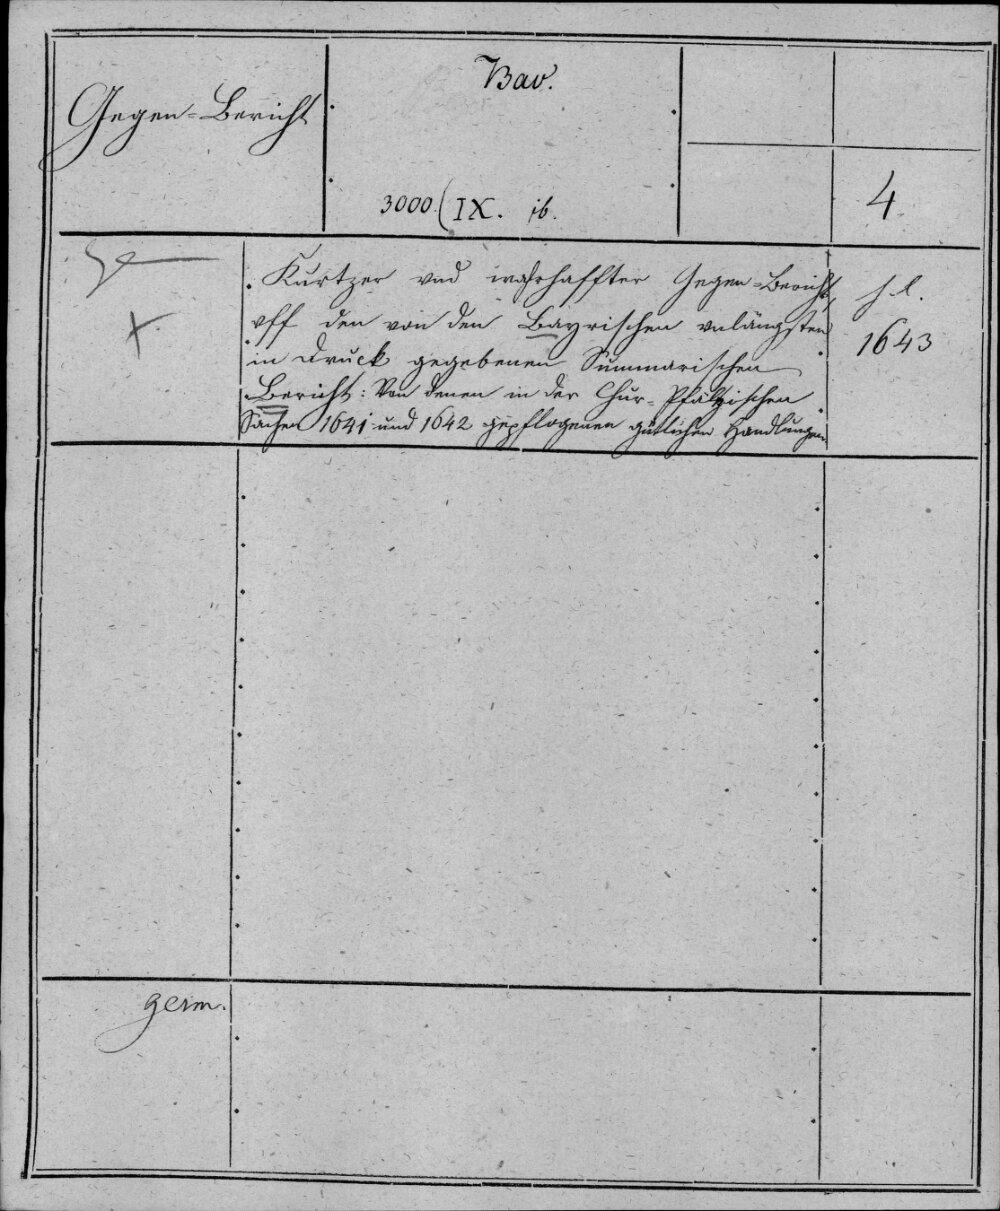 Gegen-Bericht
Bav.
3000 (IX. ib.
4
Kurtzer und wahrhaffter Gegen-Bericht,
uff den von den Bayrischen unlängsten
in Druck gegebenen Summarischen
Bericht: Von denen in der Chur-Pfältzischen
Sachen 1641 und 1642 gepflogenen gütlichen Handlungen
s l.
1643
germ.